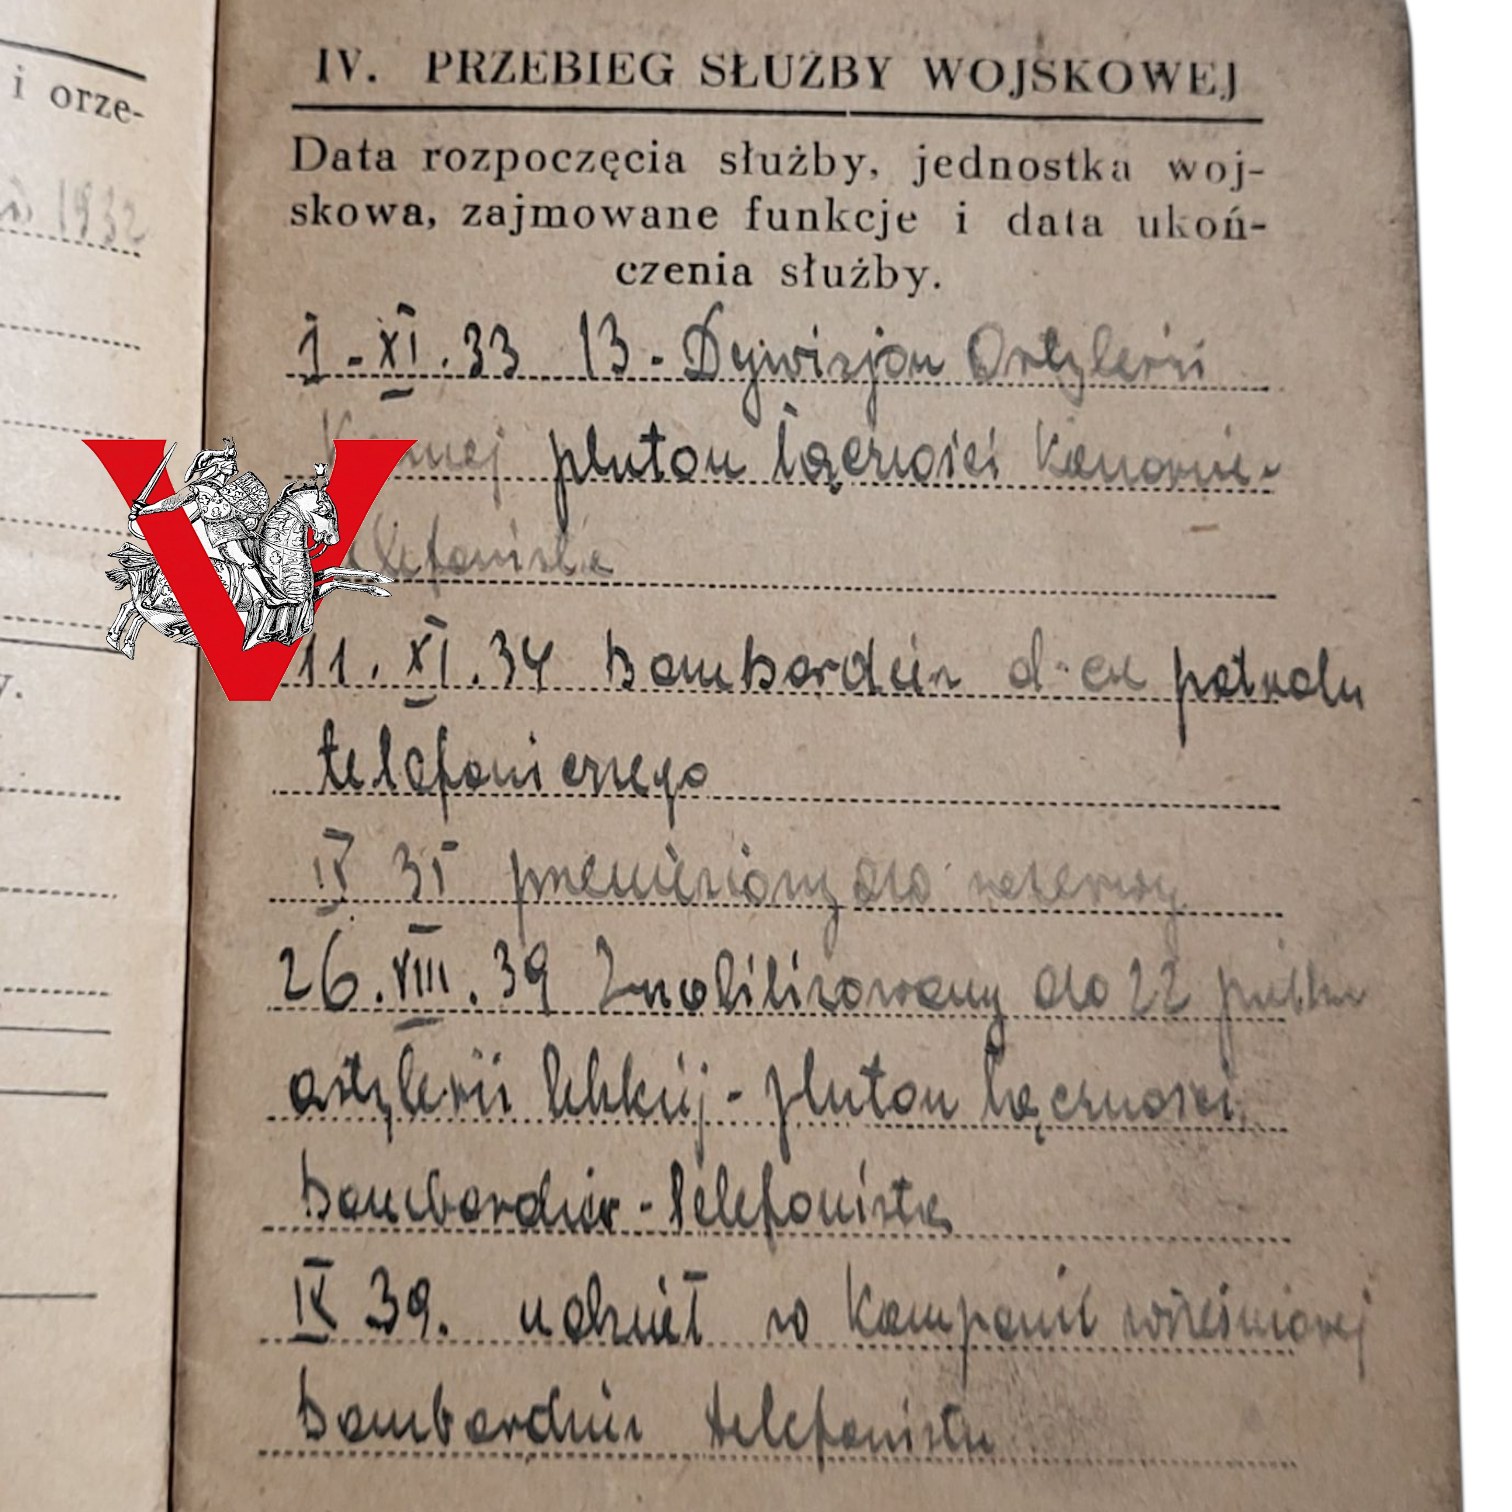 i orze-
1932
y.
IV. PRZEBIEG SŁUŻBY WOJSKOWEJ
Data rozpoczęcia służby, jednostka woj-
skowa, zajmowane funkcje i data ukoń-
czenia służby.
1-XI.33 13-Dywizjon Artylerii
Konnej pluton łączności Kanonier-
telefonista
V
11.XI.34 bombardier d-ca patrolu
telefonicznego
IX 35 przeniesiony do rezerwy
26.VIII.39 Zmobilizowany do 22 pułku
artylerii lekkiej - pluton łączności,
bombardier - telefonista
IX 39. udział w Kampanii wrześniowej
bombardier telefonista